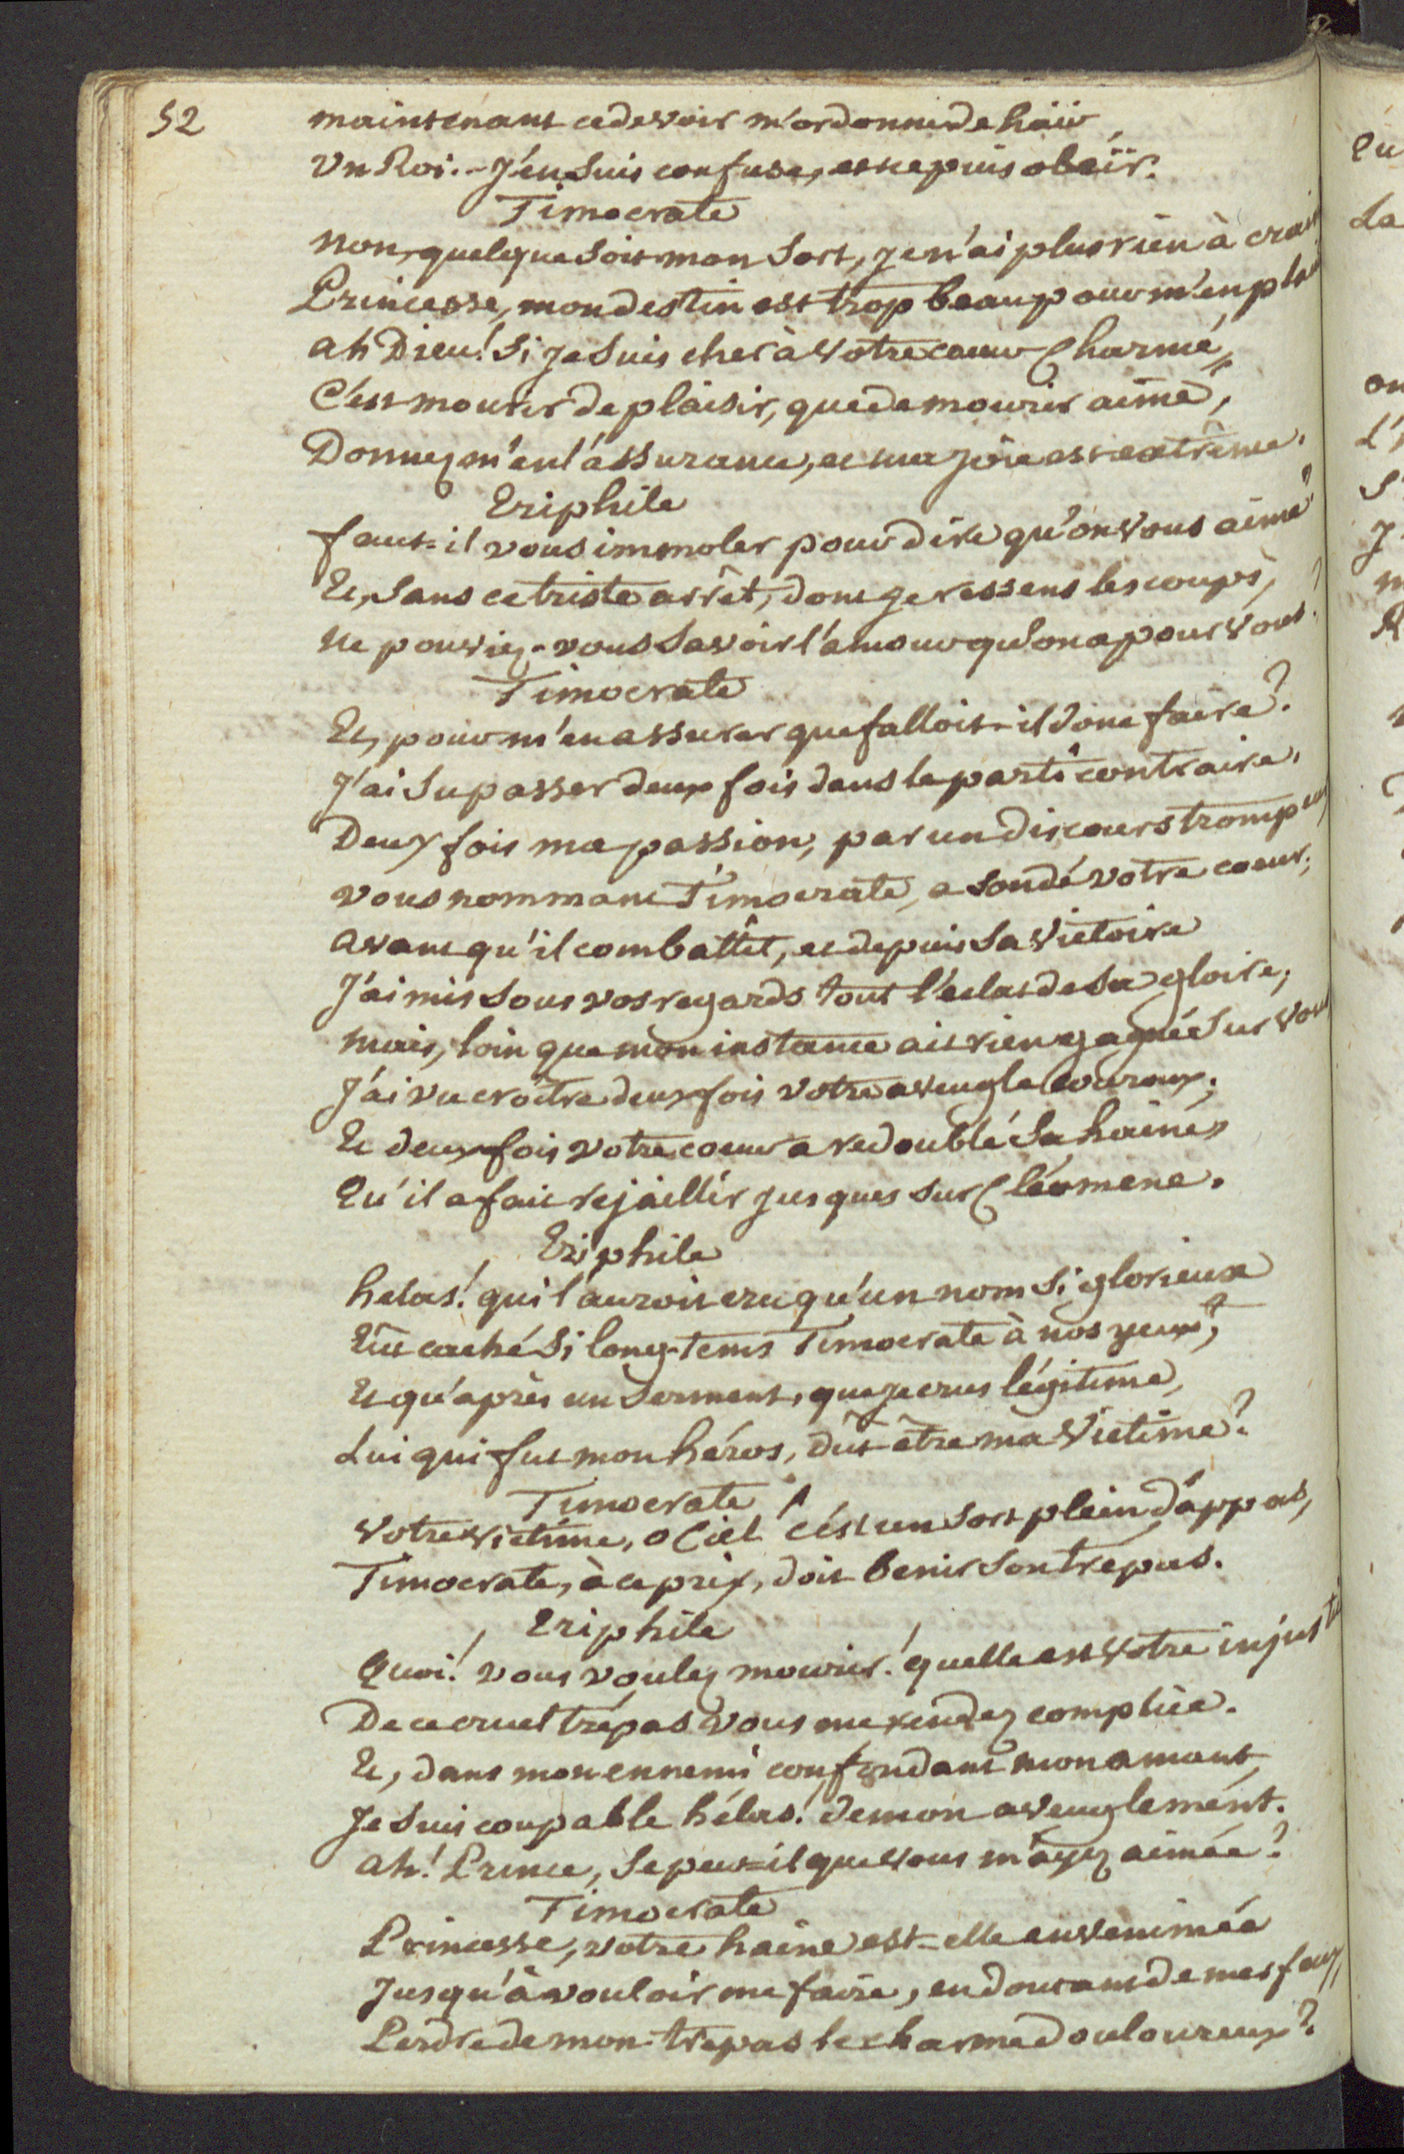 52
maintenant ce devoir m'ordonne de haïr
Un Roi. - J'en suis confuse, et ne puis obéir.
Timocrate
Non, quelque soit mon sort, je n'ai plus rien à crain
Princesse, mon destin est trop beau pour m'en plai
ah Dieu! Si je suis cher à votre cœur Charmé,
C'est mourir de plaisir, que de mourir aimé,
Donnez m'en l'assurance, et ma joie est extrême.
Eriphile
faut-il vous immoler pour dire qu'on vous aime?
Et, sans ce triste arrêt, dont je ressens les coups,
Ne pouviez-vous savoir l'amour qu'on a pour vous?
Timocrate
Et, pour m'en assurer que falloit-il donc faire?
J'ai su passer deux fois dans le parti contraire.
Deux fois ma passion, par un discours trompeur
vous nommant Timocrate, a sondé votre coeur;
avant qu'il combattît, et depuis sa victoire
J'ai mis sous vos regards tout l'eclat de sa gloire;
mais, loin que mon instance ait rien gagnée sur vous
J'ai vu croître deux fois votre aveugle couroux;
Et deux fois votre coeur a redoublé sa haine,
Qu'il a fait rejaillir jusques sur Cléomene.
Eriphile
helas! qui l'auroit cru qu'un nom si glorieux
Eût caché si long-tems Timocrate à nos yeux?
Et qu'après un serment, que je crus légitime,
Lui qui fut mon héros, dût être ma victime?
Timocrate
Votre victime, o Ciel! c'est un sort plein d'appas,
Timocrate, à ce prix, doit benir son trépas.
Eriphile
Quoi! vous voulez mourir! quelle est votre injusti
De ce cruel trépas vous me rendez complice.
Et, dans mon ennemi confondant mon amant,
Je suis coupable hélas! de mon aveuglement.
ah! Prince, se peut-il que vous m'ayez aimée?
Timocrate
Princesse, votre haine est-elle envenimée
Jusqu'à vouloir me faire, en doutant de mes feux,
Perdre de mon trepas le charme douloureux?